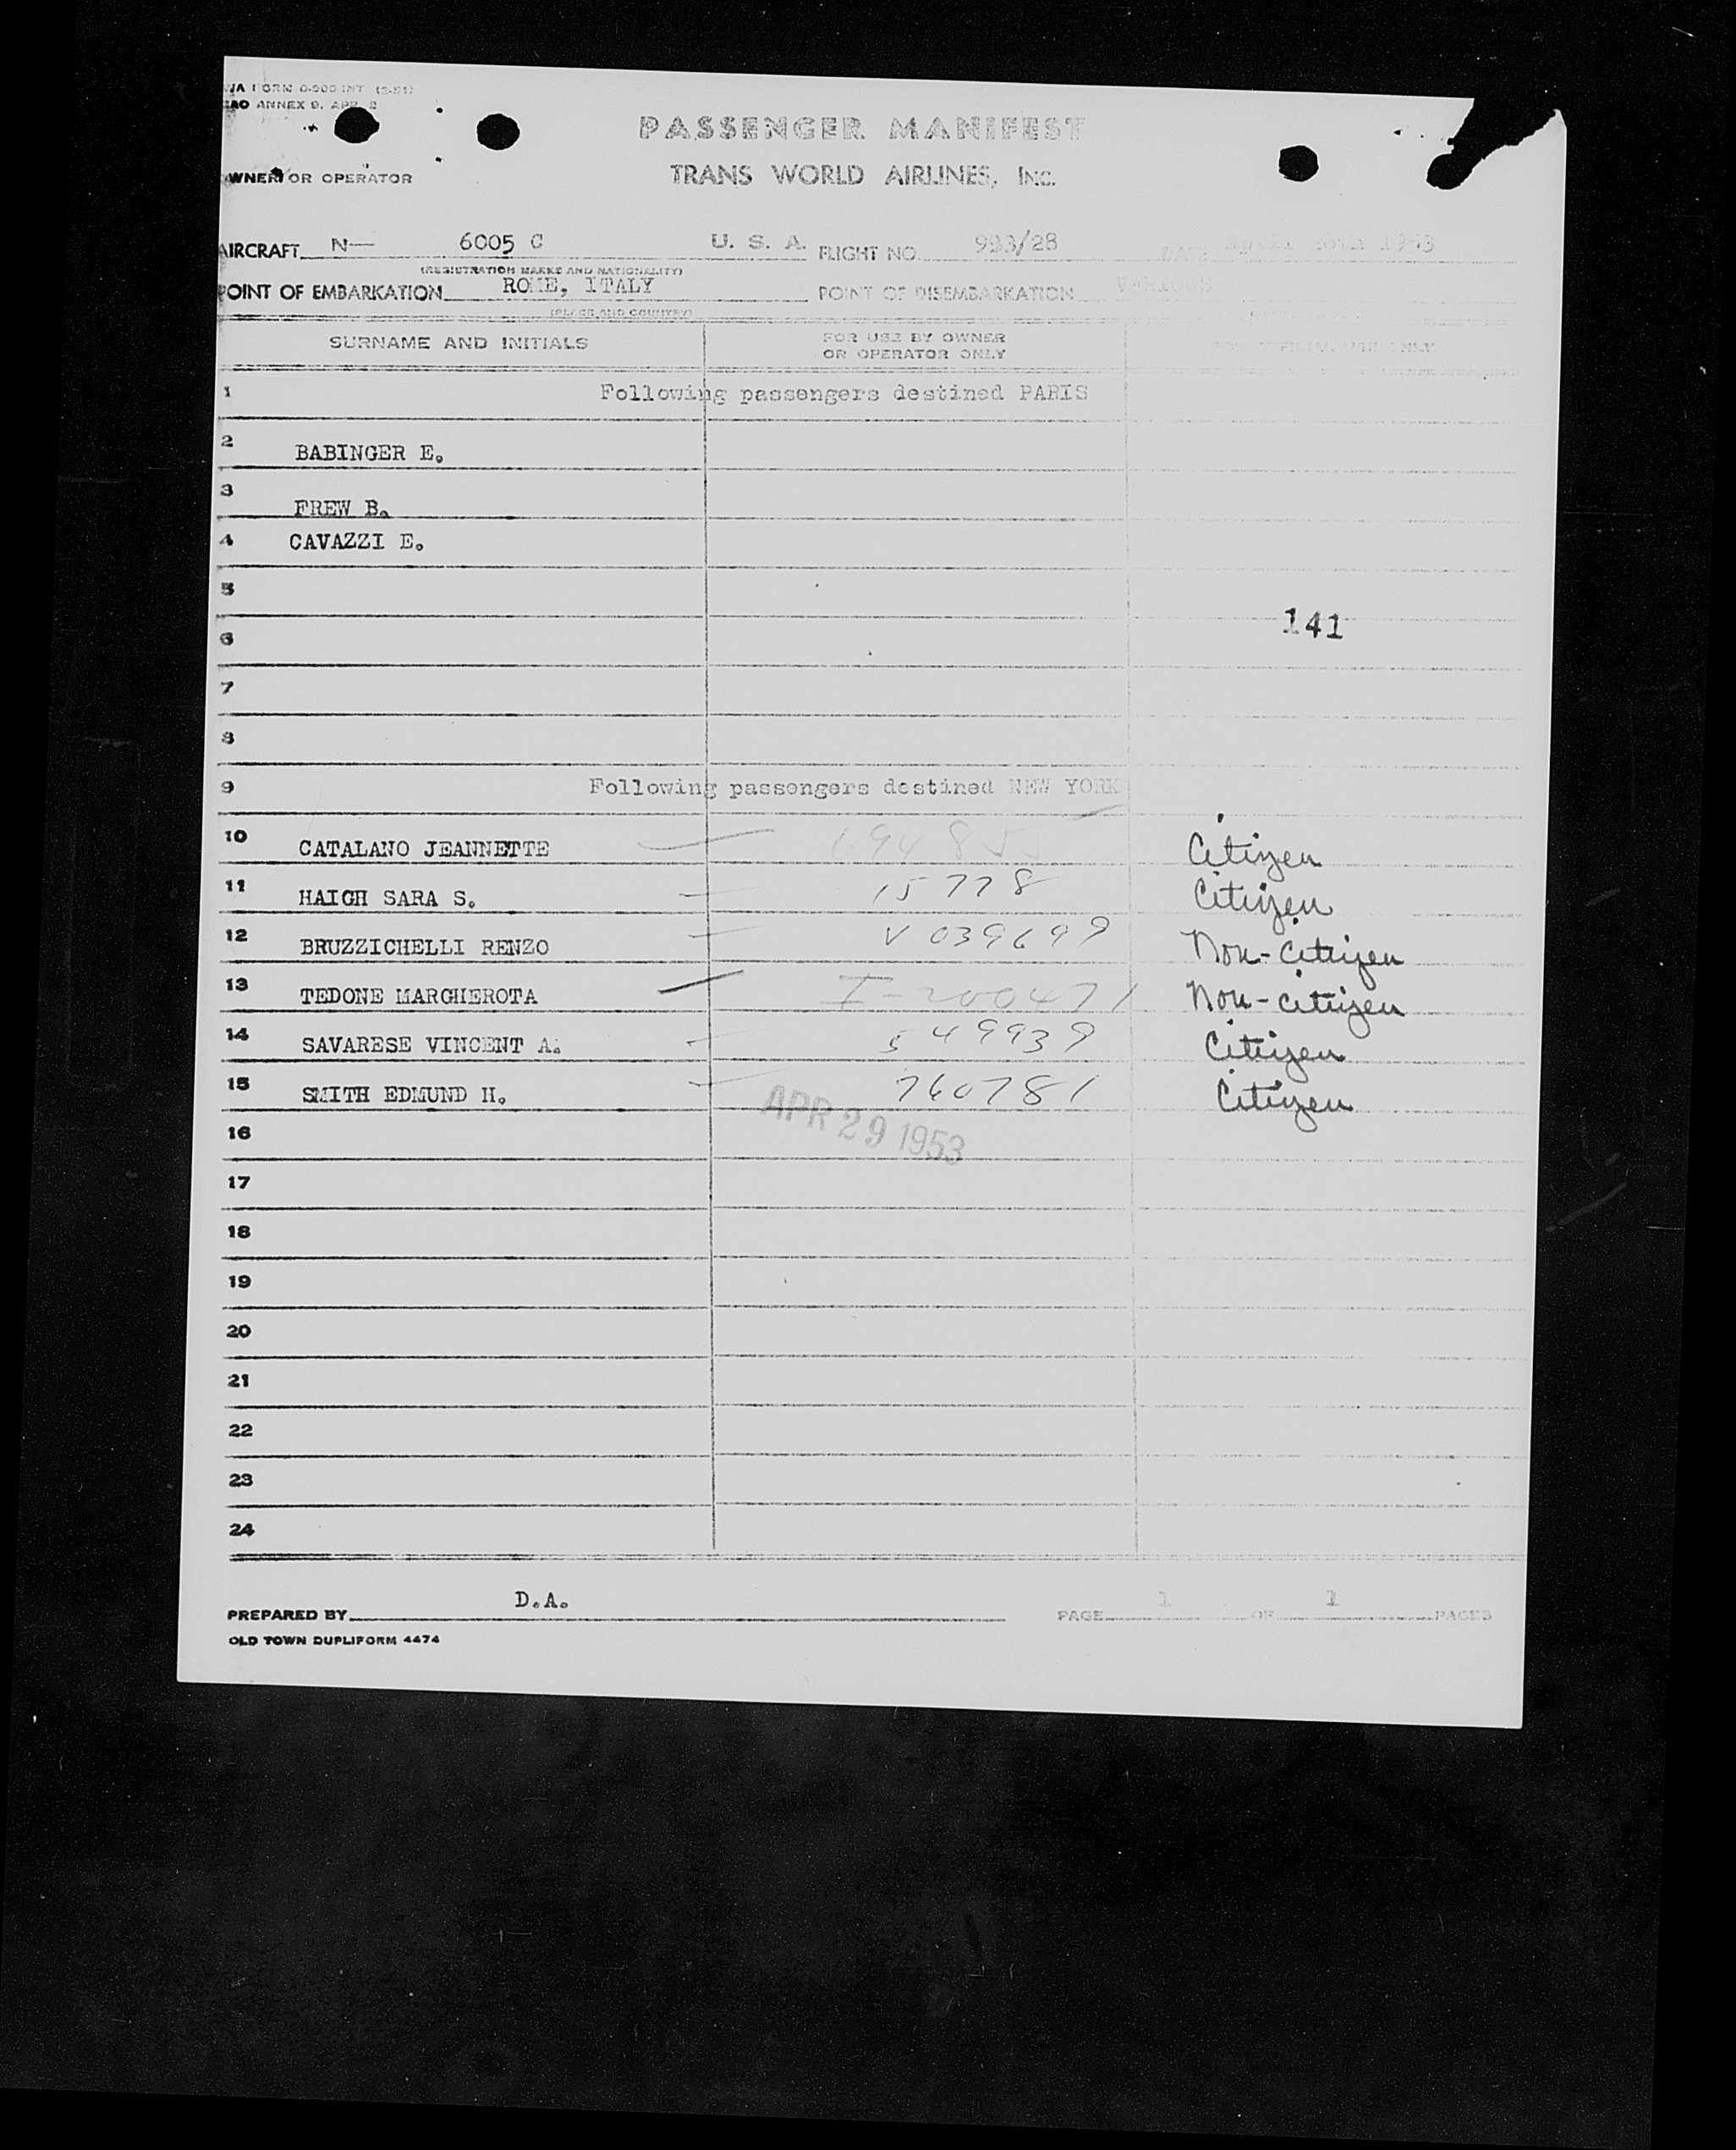 FORM 0-900 INT (2-51)
ANNEX 9, APP. 2
PASSENGER MANIFEST
OWNER OR OPERATOR TRANS WORLD AIRLINES, INC.
AIRCRAFT N— 6005 C U. S. A. FLIGHT NO. 993/28 DATE April 1953
(REGISTRATION MARKS AND NATIONALITY)
POINT OF EMBARKATION ROME, ITALY POINT OF DISEMBARKATION VARIOUS
(PLACE AND COUNTRY)
SURNAME AND INITIALS FOR USE BY OWNER OR OPERATOR ONLY FOR OFFICIAL USE ONLY
1 Following passengers destined PARIS
2 BABINGER E.
3 FREW B.
4 CAVAZZI E.
5
141
6
7
8
9 Following passengers destined NEW YORK
10 CATALANO JEANNETTE Citizen
11 HAIGH SARA S. 15778 Citizen
12 BRUZZICHELLI RENZO V 039699 Non-Citizen
13 TEDONE MARGHEROTA I-200471 Non-citizen
14 SAVARESE VINCENT A. 549939 Citizen
15 SMITH EDMUND H. 760781 Citizen
APR 29 1953
16
17
18
19
20
21
22
23
24
PREPARED BY D.A. PAGE 1 OF 1 PAGES
OLD TOWN DUPLIFORM 4474